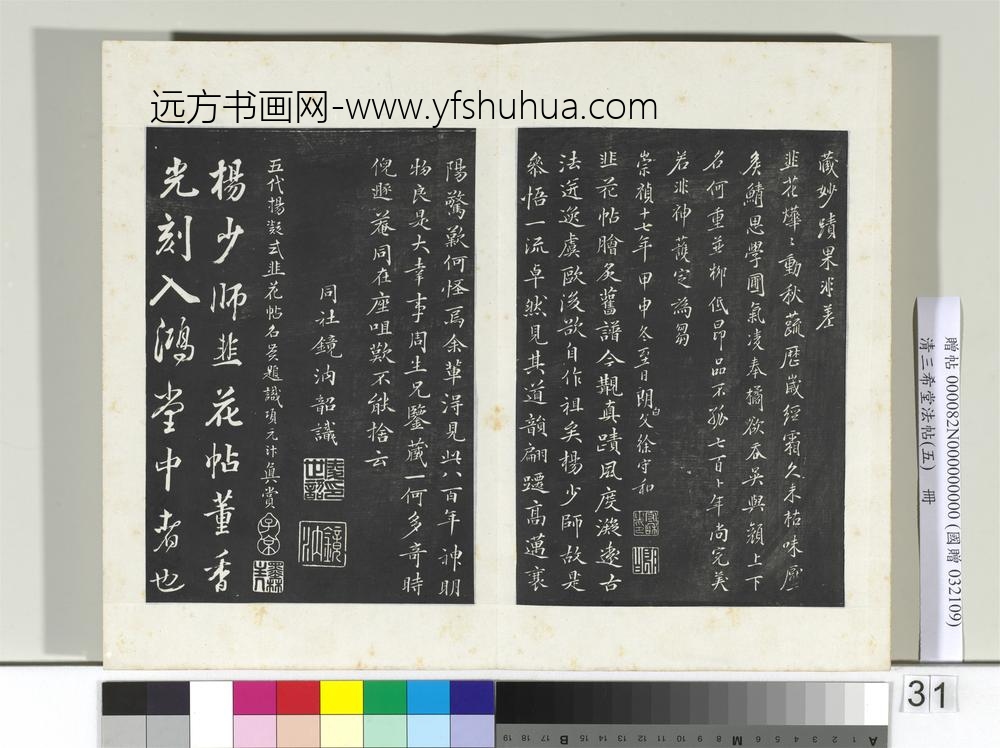 远方书画网-www.yfshuhua.com
藏妙蹟果非差
韭花燁〻動秋蔬歷歲經霜久未枯味壓
矦鯖思學圃氣凌奉橘欲吞吳與顏上下
名何重並柳低昂品不孤七百卜年尚完美
若非神護定為芻
崇禎十七年甲申冬至日閒父徐守和
韭花帖膾炙舊譜今覩真蹟風度凝遠古
法逆遡虞歐後欲自作祖矣楊少師故是
叅悟一流卓然見其道韻翩躚高邁裹
陽驚歎何怪焉余輩淂見此八百年神明
物良是大幸事周生兄鑒藏一何多奇時
倪遯菴同在座咀歎不能捨云
同社鏡汭韶識
五代揚凝式韭花帖名賢題識項元汴真賞
子京
楊少師韭花帖董香
光刻入鴻堂中者也
贈帖 000082N000000000 (國贈 032109)
清三希堂法帖(五) 冊
31